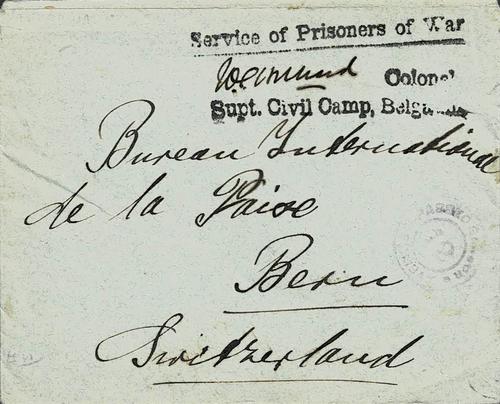 Service of Prisoners of War
Colonel
Supt. Civil Camp, Belgaum
Bureau International
de la Paise
Bern
Switzerland